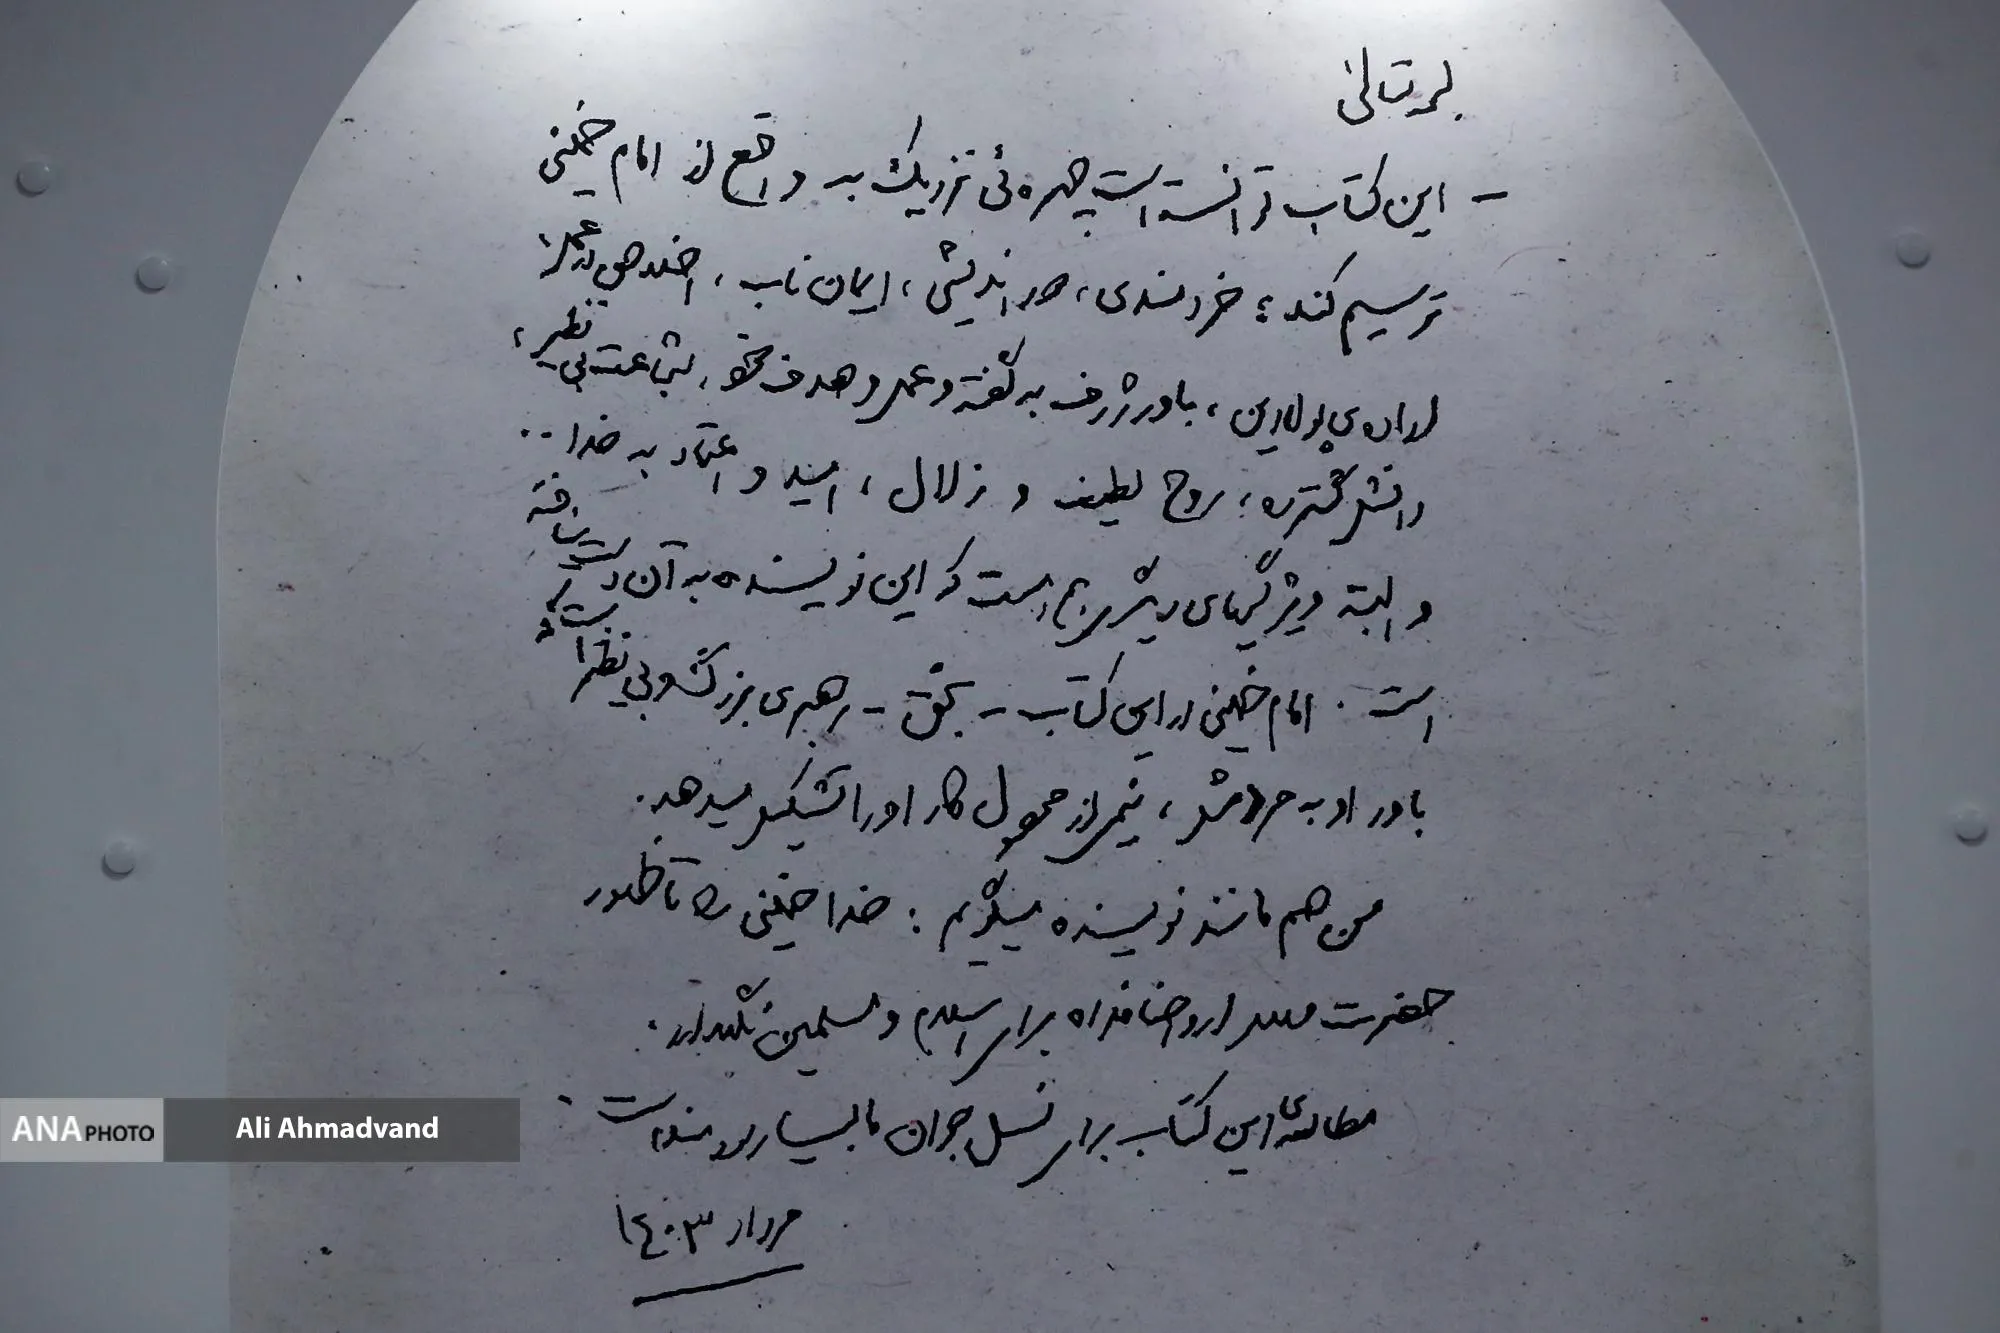 بسمه تعالی
- این کتاب توانسته است چهره‌ئی نزدیک به واقع از امام خمینی
ترسیم کند؛ خردمندی، دوراندیشی، ایمان ناب، اخلاص در عمل،
اراده‌ی پولادین، باور ژرف به گفته و عمل و هدف خود، شجاعت بی‌نظیر،
دانش گسترده، روح لطیف و زلال، امید و اعتماد به خدا ..
و البته ویژگیهای دیگری هم هست که این نویسنده به آن دست نیافته
است. امام خمینی در این کتاب - بحق - رهبری بزرگ و بی نظیر است؛
باور او به مردمش، نیمی از محصول کار او را تشکیل میدهد.
من هم مانند نویسنده میگویم: خدا خمینی را تا ظهور
حضرت مهدی ارواحنا فداه برای اسلام و مسلمین نگهدارد.
مطالعه‌ی این کتاب برای نسل جوان ما بسیار سودمند است.
مرداد ۱۴۰۳
ANA PHOTO Ali Ahmadvand